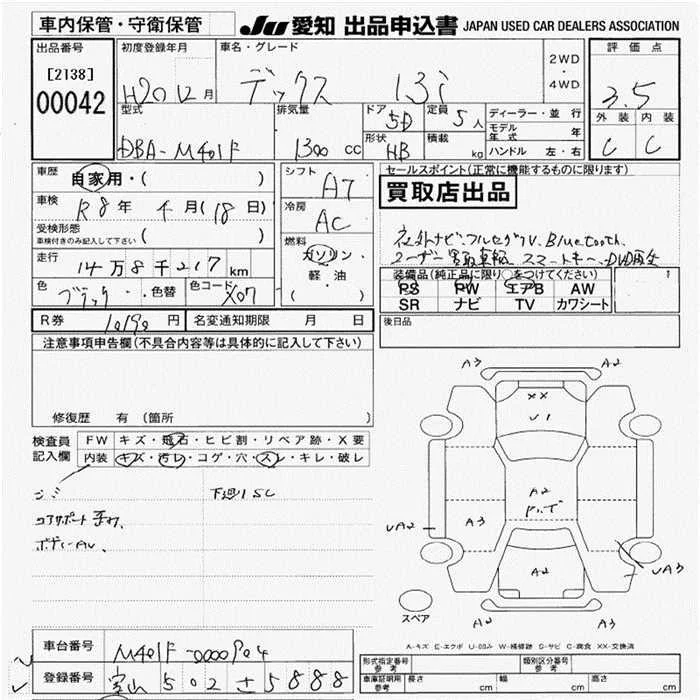 車内保管・守衛保管
JU 愛知 出品申込書 JAPAN USED CAR DEALERS ASSOCIATION
出品番号
[2138]
00042
初度登録年月
H20 12月
車名・グレード
デックス 1.3i
2WD
・
4WD
評価点
3.5
外装 内装
C C
型式
DBA-M401F
排気量
1300 cc
ドア
5D
形状
HB
定員
5人
積載
kg
ディーラー・並行
モデル年式 年
ハンドル 左・右
車歴
自家用・( )
車検
R8年 4月(18日)
受検形態
車検付きのみ記入して下さい ( )
走行
14万8千217km
色
ブラック 色替
色コード
X07
シフト
A7
冷房
AC
燃料
ガソリン・
軽・油
( )
セールスポイント(正常に機能するものに限ります)
買取店出品
ナビ・フルセグTV. Bluetooth.
スマートキー、DVD再生
装備品(純正品に限り○をつけてください)
PS PW エアB AW
SR ナビ TV カワシート
後日品
R券 円 名変通知期限 月 日
注意事項申告欄(不具合内容等は具体的に記入して下さい)
修復歴 有 (箇所 )
検査員
記入欄
FW キズ・飛石・ヒビ割・リペア跡・X要
内装 キズ・汚レ・コゲ・穴・スレ・キレ・破レ
下廻りSC
コアサポート
A3 A2
XX
U1
A2
UA2 A3
UA3
A2
A2 A3
スペア
A-キズ E-エクボ U-凹み W-補修跡 S-サビ C-腐食 XX-交換済
車台番号
M401F-0000904
登録番号
富山 502 さ 5888
形式指定番号
参考
類別区分番号
参考
車庫証明用
参考
長さ cm 幅 cm 高さ cm